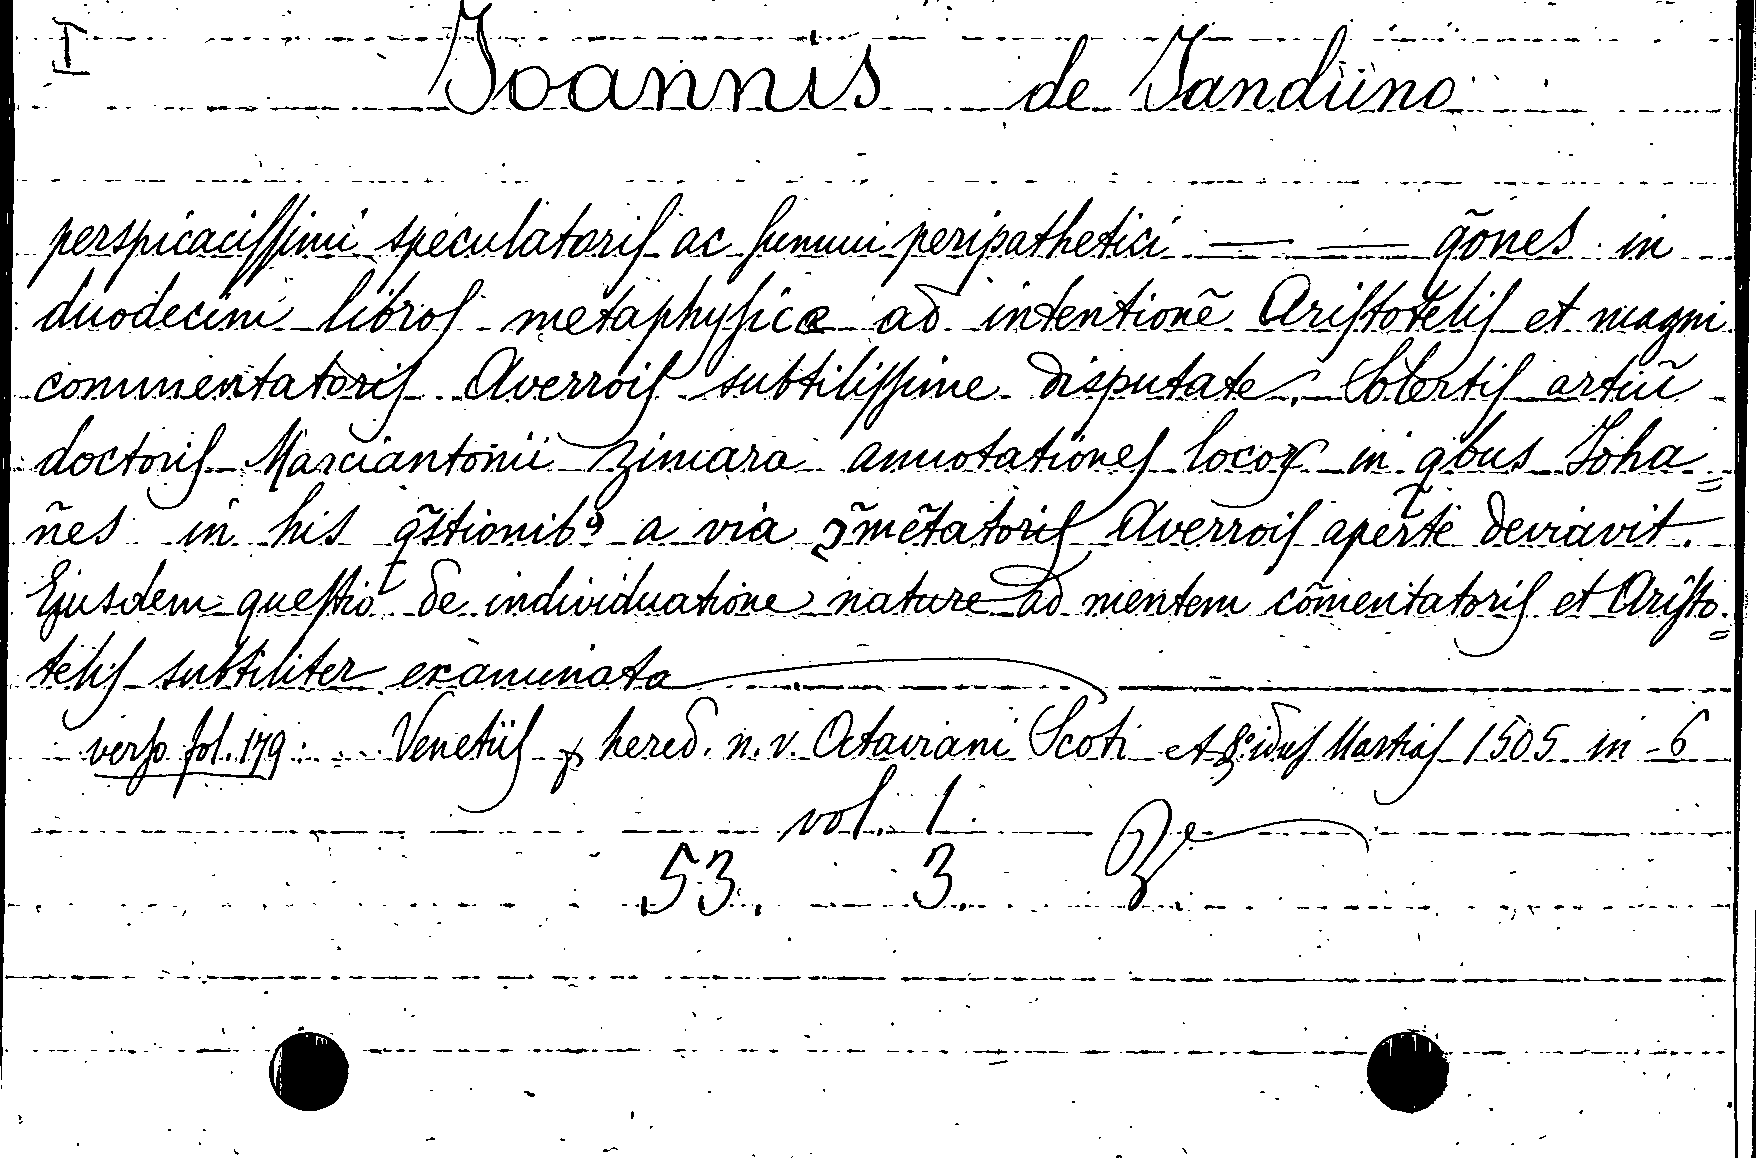 I Joannis de Janduno
perspicacissimi speculatoris ac summi peripathetici — — q̃ones in
duodecim libros metaphysice ad intentionẽ Aristotelis et magni
commentatoris Averrois subtilissime disputate. Solertis artiũ
doctoris Marciantonii Zimara annotationes locoꝝ in qbus Joha=
ñes in his q̃stionibꝰ a via ꝯmẽtatoris Averrois aperte deviavit.
Ejusdem questio de individuatione nature ad mentem cõmentatoris et Aristo=
telis subtiliter examinata
verso fol. 179: Venetiis ꝑ hered. n. v. Octaviani Scoti idus Martias 1505 in -6
vol. 1.
53. 3.